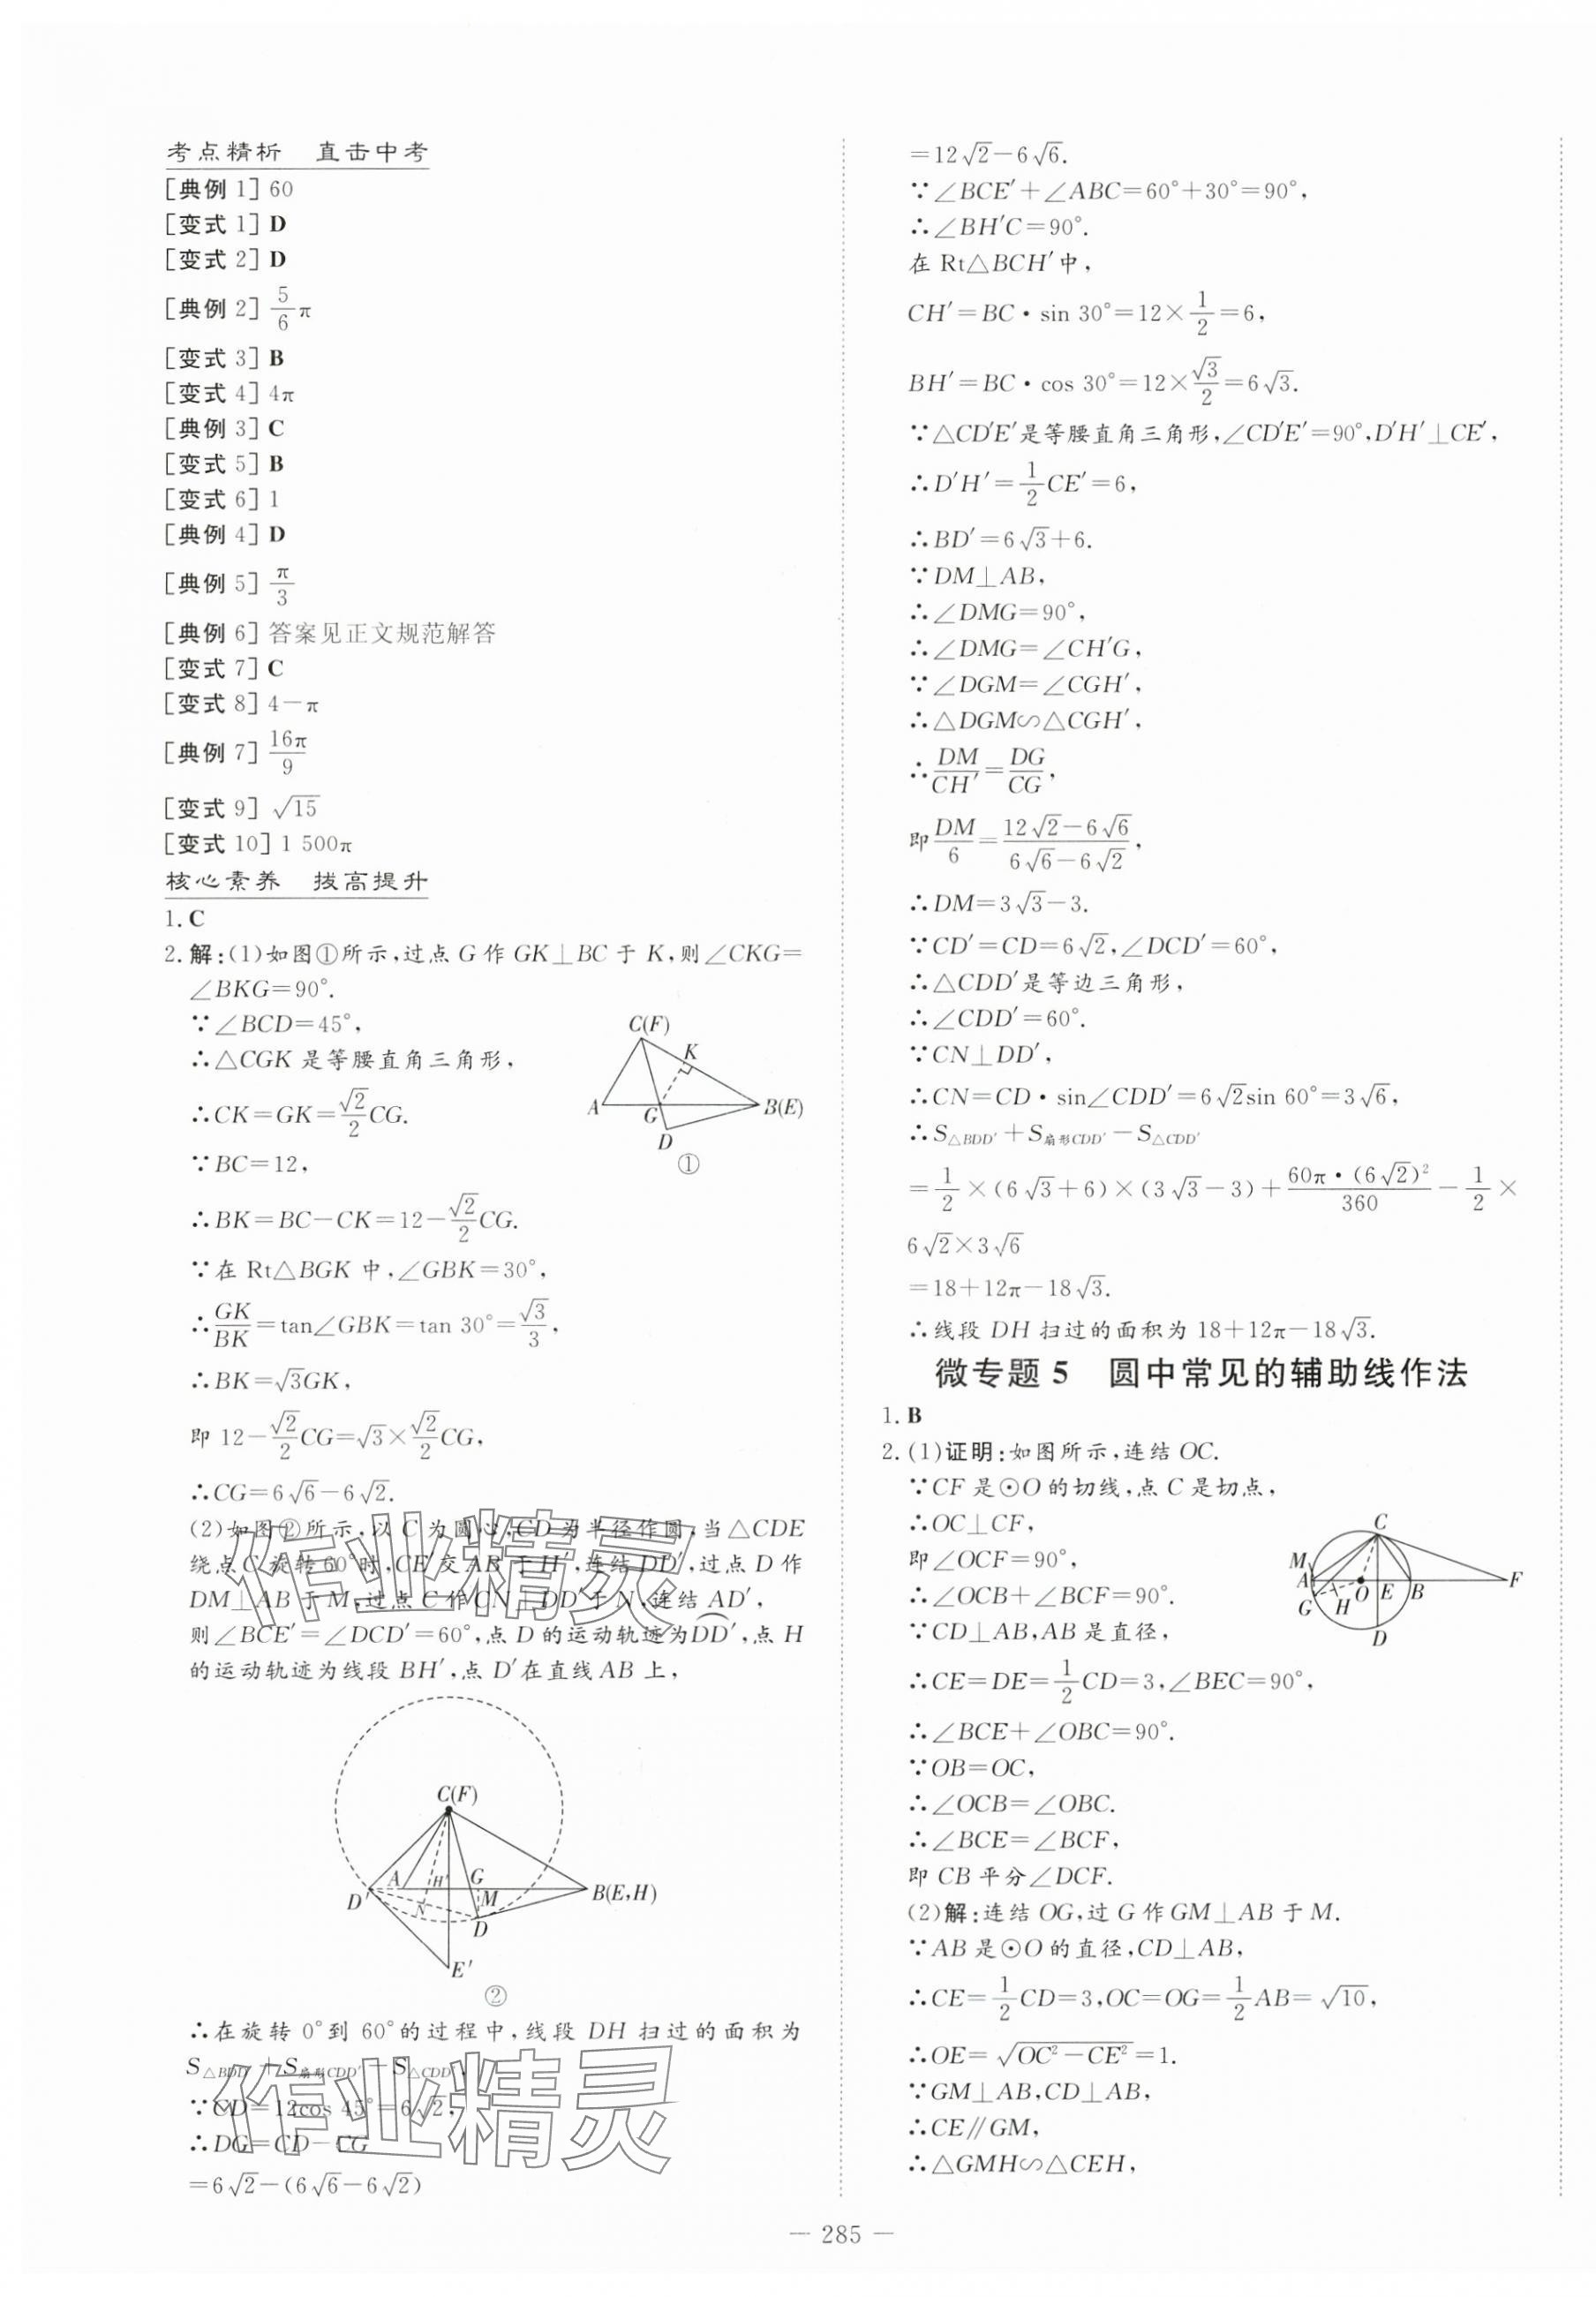 考点精析　直击中考
[典例 1] 60
[变式 1] D
[变式 2] D
[典例 2] 5/6 π
[变式 3] B
[变式 4] 4π
[典例 3] C
[变式 5] B
[变式 6] 1
[典例 4] D
[典例 5] π/3
[典例 6] 答案见正文规范解答
[变式 7] C
[变式 8] 4－π
[典例 7] 16π/9
[变式 9] √15
[变式 10] 1 500π
核心素养　拔高提升
1. C
2. 解:(1)如图①所示,过点 G 作 GK⊥BC 于 K,则∠CKG=
∠BKG=90°.
∵∠BCD=45°,
∴△CGK 是等腰直角三角形,
∴CK=GK=√2/2 CG.
∵BC=12,
∴BK=BC－CK=12－√2/2 CG.
∵在 Rt△BGK 中,∠GBK=30°,
∴GK/BK=tan∠GBK=tan 30°=√3/3,
∴BK=√3GK,
即 12－√2/2 CG=√3×√2/2 CG,
∴CG=6√6－6√2.
C(F)
K
A
G
B(E)
D
①
(2)如图②所示,以 C 为圆心,CD 为半径作圆,当△CDE
绕点 C 旋转 60°时,CE′交 AB 于 H′,连结 DD′,过点 D 作
DM⊥AB 于 M,过点 C 作 CN⊥DD′于 N,连结 AD′,
则∠BCE′=∠DCD′=60°,点 D 的运动轨迹为⌒DD′,点 H
的运动轨迹为线段 BH′,点 D′在直线 AB 上,
C(F)
A
H′
G
D′
N
M
B(E,H)
D
E′
②
∴在旋转 0°到 60°的过程中,线段 DH 扫过的面积为
S△BDD′＋S扇形CDD′－S△CDD′.
∵CD=12cos 45°=6√2,
∴DG=CD－CG
=6√2－(6√6－6√2)
=12√2－6√6.
∵∠BCE′＋∠ABC=60°＋30°=90°,
∴∠BH′C=90°.
在 Rt△BCH′中,
CH′=BC·sin 30°=12×1/2=6,
BH′=BC·cos 30°=12×√3/2=6√3.
∵△CD′E′是等腰直角三角形,∠CD′E′=90°,D′H′⊥CE′,
∴D′H′=1/2 CE′=6,
∴BD′=6√3＋6.
∵DM⊥AB,
∴∠DMG=90°,
∴∠DMG=∠CH′G,
∵∠DGM=∠CGH′,
∴△DGM∽△CGH′,
∴DM/CH′=DG/CG,
即 DM/6=(12√2－6√6)/(6√6－6√2),
∴DM=3√3－3.
∵CD′=CD=6√2,∠DCD′=60°,
∴△CDD′是等边三角形,
∴∠CDD′=60°.
∵CN⊥DD′,
∴CN=CD·sin∠CDD′=6√2sin 60°=3√6,
∴S△BDD′＋S扇形CDD′－S△CDD′
=1/2×(6√3＋6)×(3√3－3)＋60π·(6√2)²/360－1/2×
6√2×3√6
=18＋12π－18√3.
∴线段 DH 扫过的面积为 18＋12π－18√3.
微专题 5　圆中常见的辅助线作法
1. B
2. (1)证明:如图所示,连结 OC.
∵CF 是⊙O 的切线,点 C 是切点,
∴OC⊥CF,
即∠OCF=90°,
∴∠OCB＋∠BCF=90°.
∵CD⊥AB,AB 是直径,
∴CE=DE=1/2 CD=3,∠BEC=90°,
C
M
A
O
E
B
F
G
H
D
∴∠BCE＋∠OBC=90°.
∵OB=OC,
∴∠OCB=∠OBC.
∴∠BCE=∠BCF,
即 CB 平分∠DCF.
(2)解:连结 OG,过 G 作 GM⊥AB 于 M.
∵AB 是⊙O 的直径,CD⊥AB,
∴CE=1/2 CD=3,OC=OG=1/2 AB=√10,
∴OE=√(OC²－CE²)=1.
∵GM⊥AB,CD⊥AB,
∴CE∥GM,
∴△GMH∽△CEH,
— 285 —
作业精灵
作业精灵